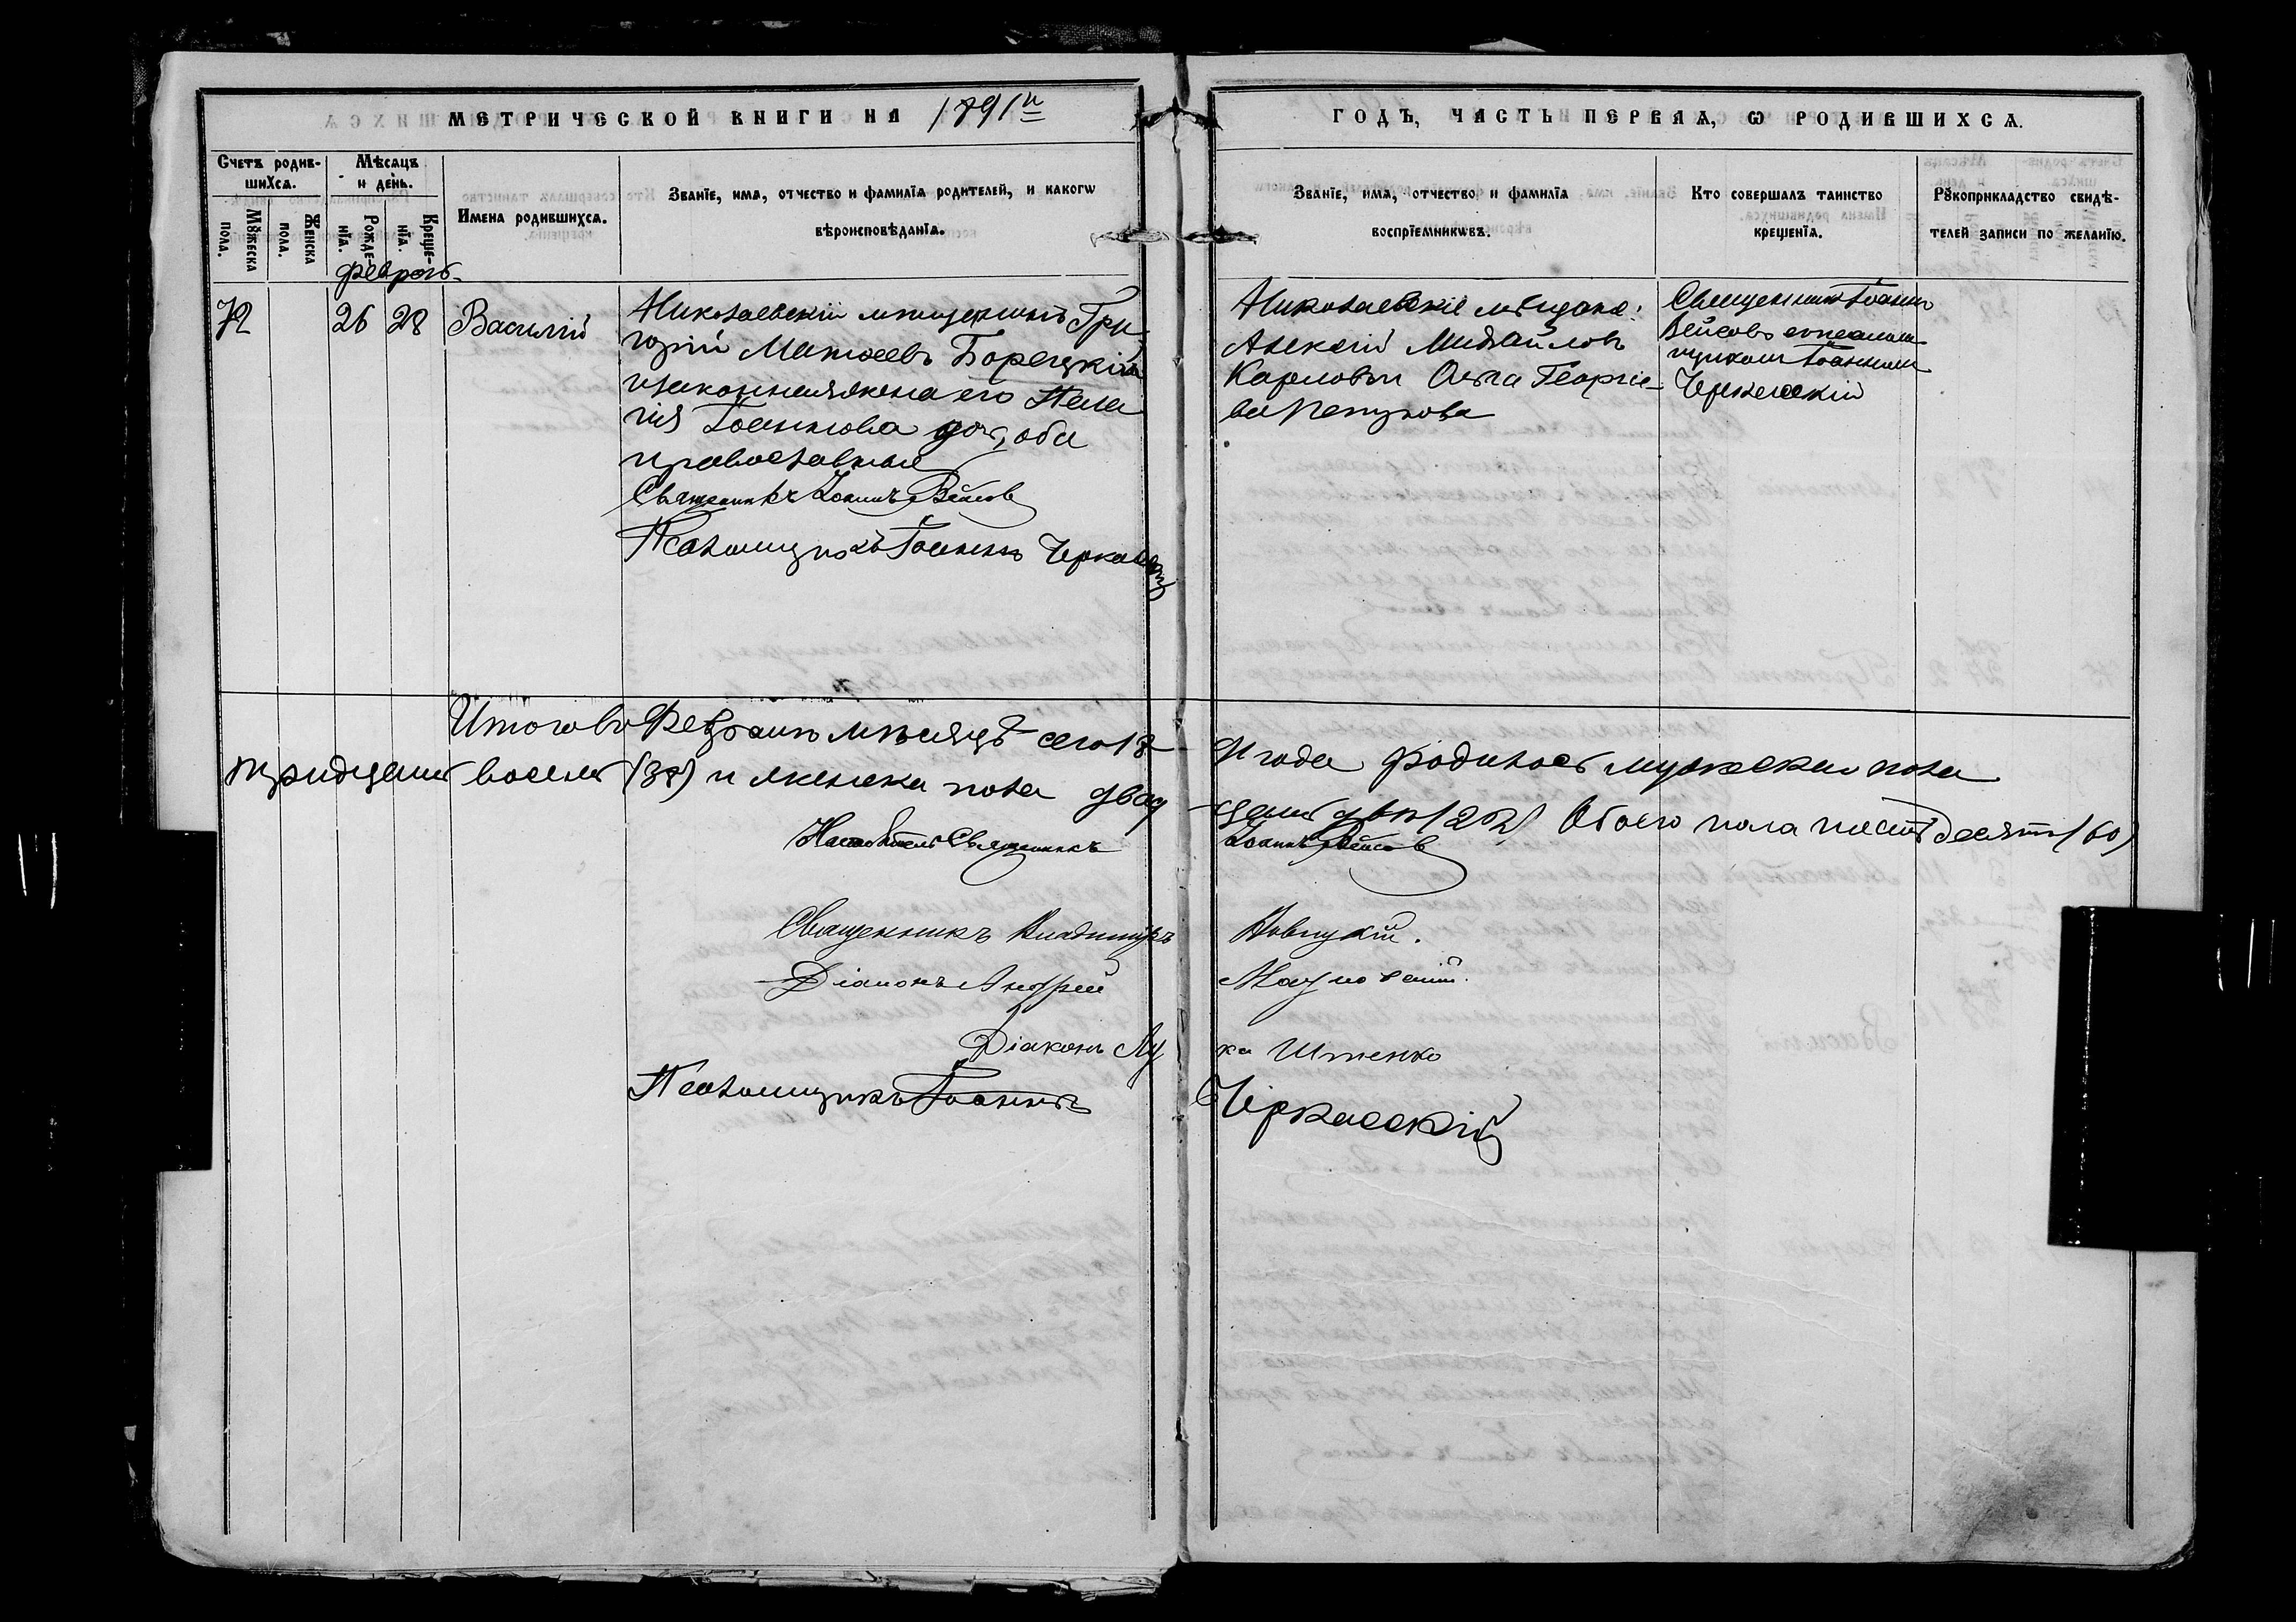 МЕТРИЧЕСКОЙ КНИГИ НА 1891й
ГОДЪ, ЧАСТЬ ПЕРВАЯ, Ѡ РОДИВШИХСЯ.
Счетъ родив-
шихся.
Мѣсяцъ
и день.
Мꙋжеска
пола.
Женска
пола.
Рожде-
нїя.
Креще-
нїя.
Имена родившихся.
Званїе, имя, отчество и фамилїя родителей, и какогѡ
вѣроисповѣданїя.
Званїе, имя, отчество и фамилїя
воспрїемникѡвъ.
Кто совершалъ таинство
крещенїя.
Рꙋкоприкладство свидѣ-
телей записи по желанїю.
Февраль
72
26
28
Василій
Николаевскій мѣщанинъ Гри
горій Матѳеевъ Борецкій
и законная жена его Пела
гія Іоаннова доч, оба
православные
Священникъ Іоаннъ Вейсов
Псаломщикъ Іоаннъ Черкасскій
Николаевскіе мѣщане:
Алексій Михайловъ
Карловъ и Ольга Георгіе-
ва Петухова
Священникъ Іоаннъ
Вейсовъ съ псалом
щикомъ Іоанномъ
Черкасскій
Итого въ Февралѣ мѣсяцѣ сего 18
91 года родилось мужеска пола
тридцать восемь (38) и женска пола двад
цать два (22) Обоего пола шестьдесятъ (60)
Настоятель Священникъ
Іоаннъ Вейсов
Священникъ Владимиръ
Новицкій.
Діаконъ Андрей
Діаконъ Лу
ка
Псаломщикъ Іоаннъ
Черкасскій